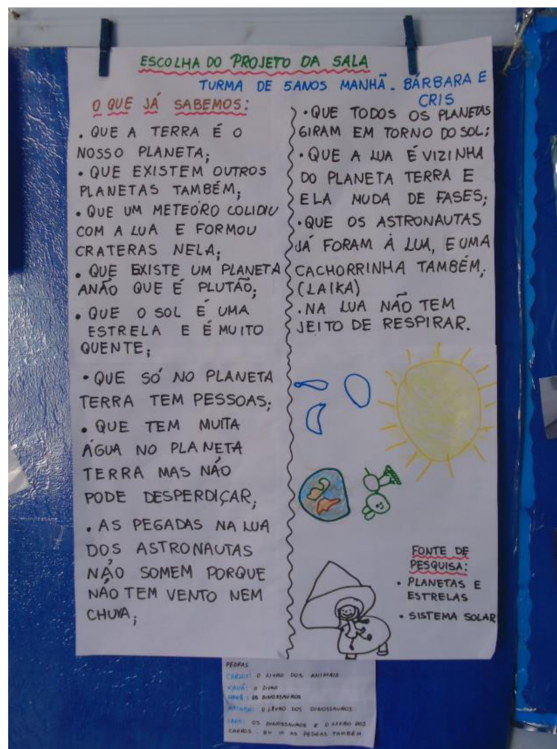 ESCOLHA DO PROJETO DA SALA
TURMA DE 5ANOS MANHÃ. BÁRBARA E
CRIS
O QUE JÁ SABEMOS:
• QUE A TERRA É O
NOSSO PLANETA;
• QUE EXISTEM OUTROS
PLANETAS TAMBÉM;
• QUE UM METEÓRO COLIDIU
COM A LUA E FORMOU
CRATERAS NELA;
• QUE EXISTE UM PLANETA
ANÃO QUE É PLUTÃO;
• QUE O SOL É UMA
ESTRELA E É MUITO
QUENTE;
• QUE SÓ NO PLANETA
TERRA TEM PESSOAS;
• QUE TEM MUITA
ÁGUA NO PLANETA
TERRA MAS NÃO
PODE DESPERDIÇAR;
• AS PEGADAS NA LUA
DOS ASTRONAUTAS
NÃO SOMEM PORQUE
NÃO TEM VENTO NEM
CHUVA;
• QUE TODOS OS PLANETAS
GIRAM EM TORNO DO SOL;
• QUE A LUA É VIZINHA
DO PLANETA TERRA E
ELA MUDA DE FASES;
• QUE OS ASTRONAUTAS
JÁ FORAM À LUA, E UMA
CACHORRINHA TAMBÉM;
(LAIKA)
• NA LUA NÃO TEM
JEITO DE RESPIRAR.
FONTE DE
PESQUISA:
• PLANETAS E
ESTRELAS
• SISTEMA SOLAR
O LIVRO DOS ANIMAIS
O LIVRO DOS DINOSSAUROS
OS DINOSSAUROS E O LIVRO DOS
CARROS. EU VI AS PEDRAS TAMBÉM